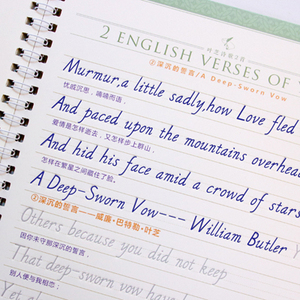 2 ENGLISH VERSES OF
②深沉的誓言/A Deep-Sworn Vow
Murmur, a little sadly, how Love fled
忧戚沉思，喃喃而语
And paced upon the mountains overhead
爱情是怎样逝去，又怎样步上群山，
And hid his face amid a crowd of stars
怎样在繁星之间藏住了脸。
A Deep-Sworn Vow---- William Butler
②深沉的誓言——威廉·巴特勒·叶芝
Others because you did not keep
因你未守那深沉的誓言，
That deep-sworn vow have
别人便与我相恋；
Yet